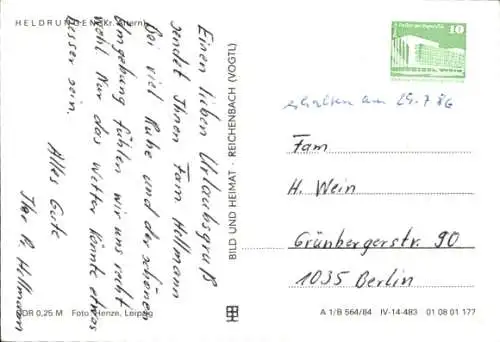 HELDRUNGEN (Kr. Artern)
Einen lieben Urlaubsgruß
sendet Ihnen Fam. Hellmann
Bei viel Ruhe und der schönen
Umgebung fühlen wir uns recht
wohl. Nur das Wetter könnte etwas
besser sein.
Alles Gute
Ihre P. Hellmann
DDR 0,25 M Foto: Henze, Leipzig
BILD UND HEIMAT · REICHENBACH (VOGTL)
10
erhalten am 29.7.86
Fam
H. Wein
Grünbergerstr. 90
1035 Berlin
A 1/B 564/84 IV-14-483 01 08 01 177